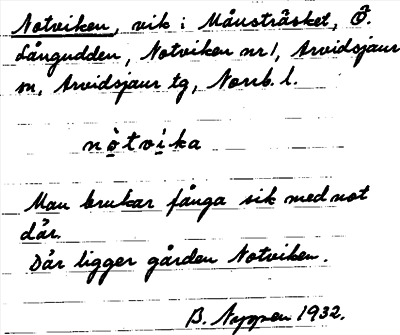 Notviken, vik i Månsträsket, Ö.
Långudden, Notviken nr 1, Arvidsjaur
sn, Arvidsjaur tg, Norrb. l.
nòtvíka
Man brukar fånga sik med not
där.
Där ligger gården Notviken.
B. Nyppen 1932.